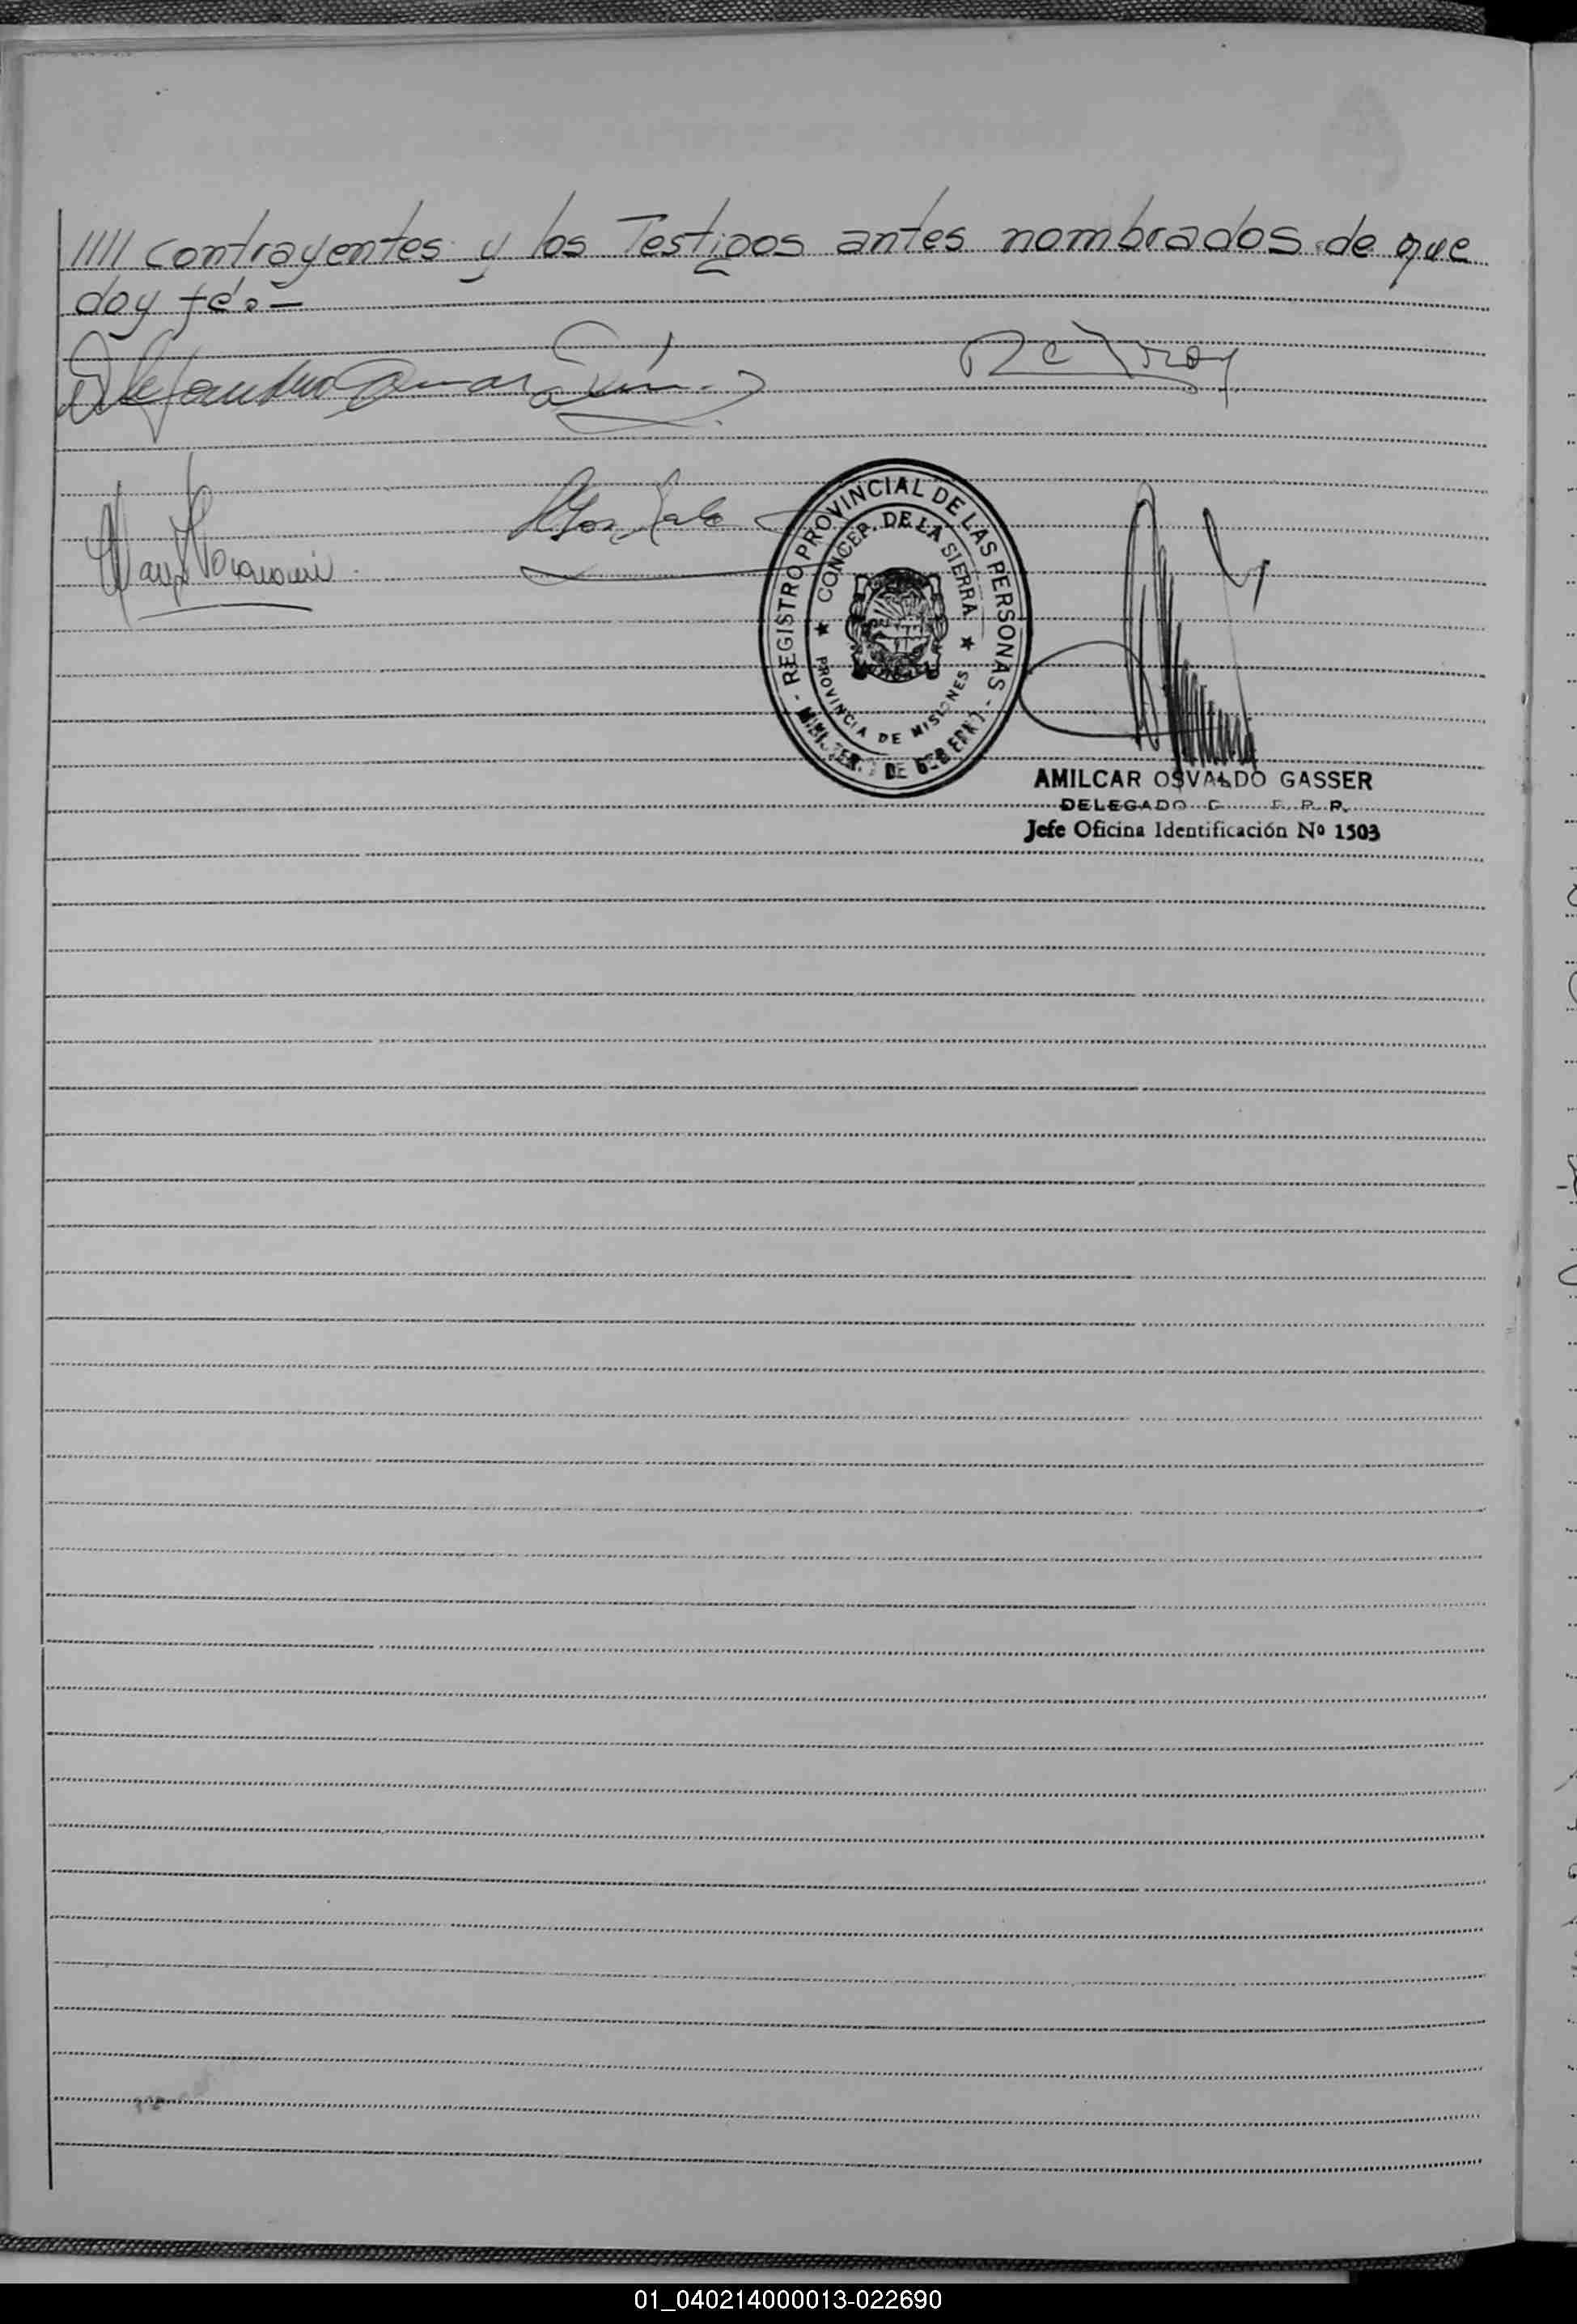 ///// contrayentes y los Testigos antes nombrados de que
doy fé.-
Alejandro
REGISTRO PROVINCIAL DE LAS PERSONAS - MINISTERIO DE GOBERNO -
CONCEP. DE LA SIERRA
PROVINCIA DE MISIONES
AMILCAR OSVALDO GASSER
DELEGADO
Jefe Oficina Identificación Nº 1503
01_040214000013-022690